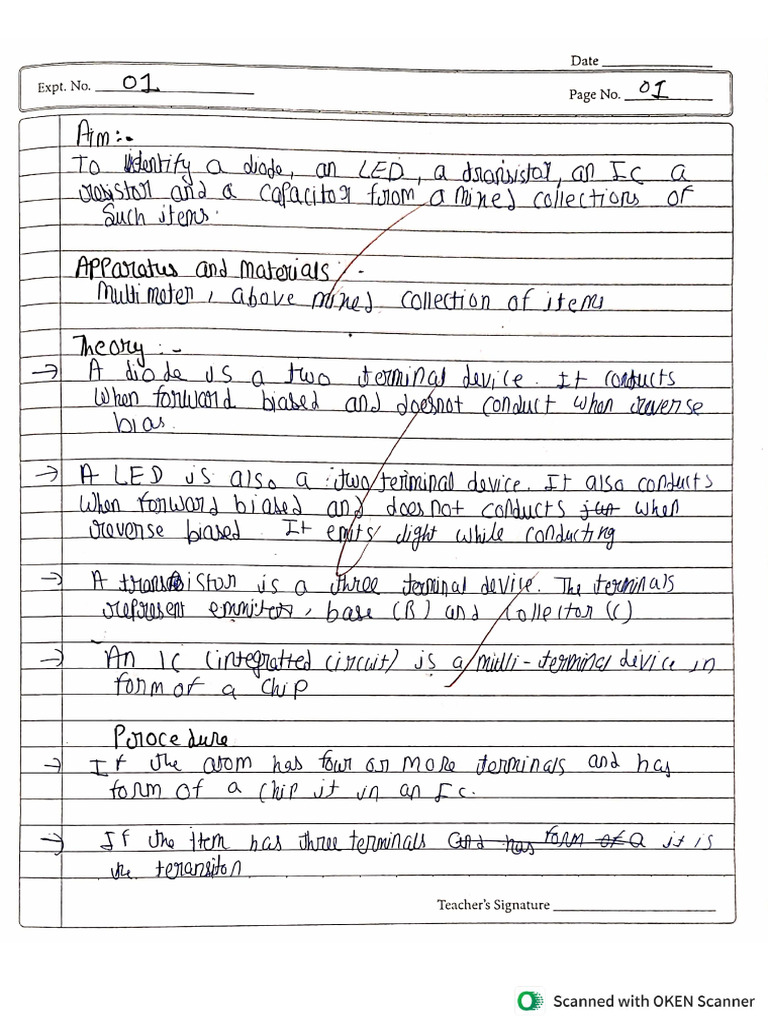 Date
Expt. No. 01
Page No. 01
Aim:-
To identify a diode, an LED, a transistor, an IC a
resistor and a capacitor from a mined collections of
Such items.
Apparatus and materials :-
Multimeter, above mined collection of items
Theory :-
→ A diode is a two terminal device. It conducts
when forward biased and doesnot conduct when reverse
bias.
→ A LED is also a two terminal device. It also conducts
when forward biased and does not conducts when
reverse biased. It emits light while conducting
→ A transistor is a three terminal device. The terminals
represent emmiter, base (B) and collector (C)
→ An IC (integratted circuit) is a multi-terminal device in
form of a chip
Porocedure
→ If the atom has four or more terminals and has
form of a chip it in an Ic.
→ If the item has three terminals and has form of a it is
the teransiton
Teacher's Signature
Scanned with OKEN Scanner